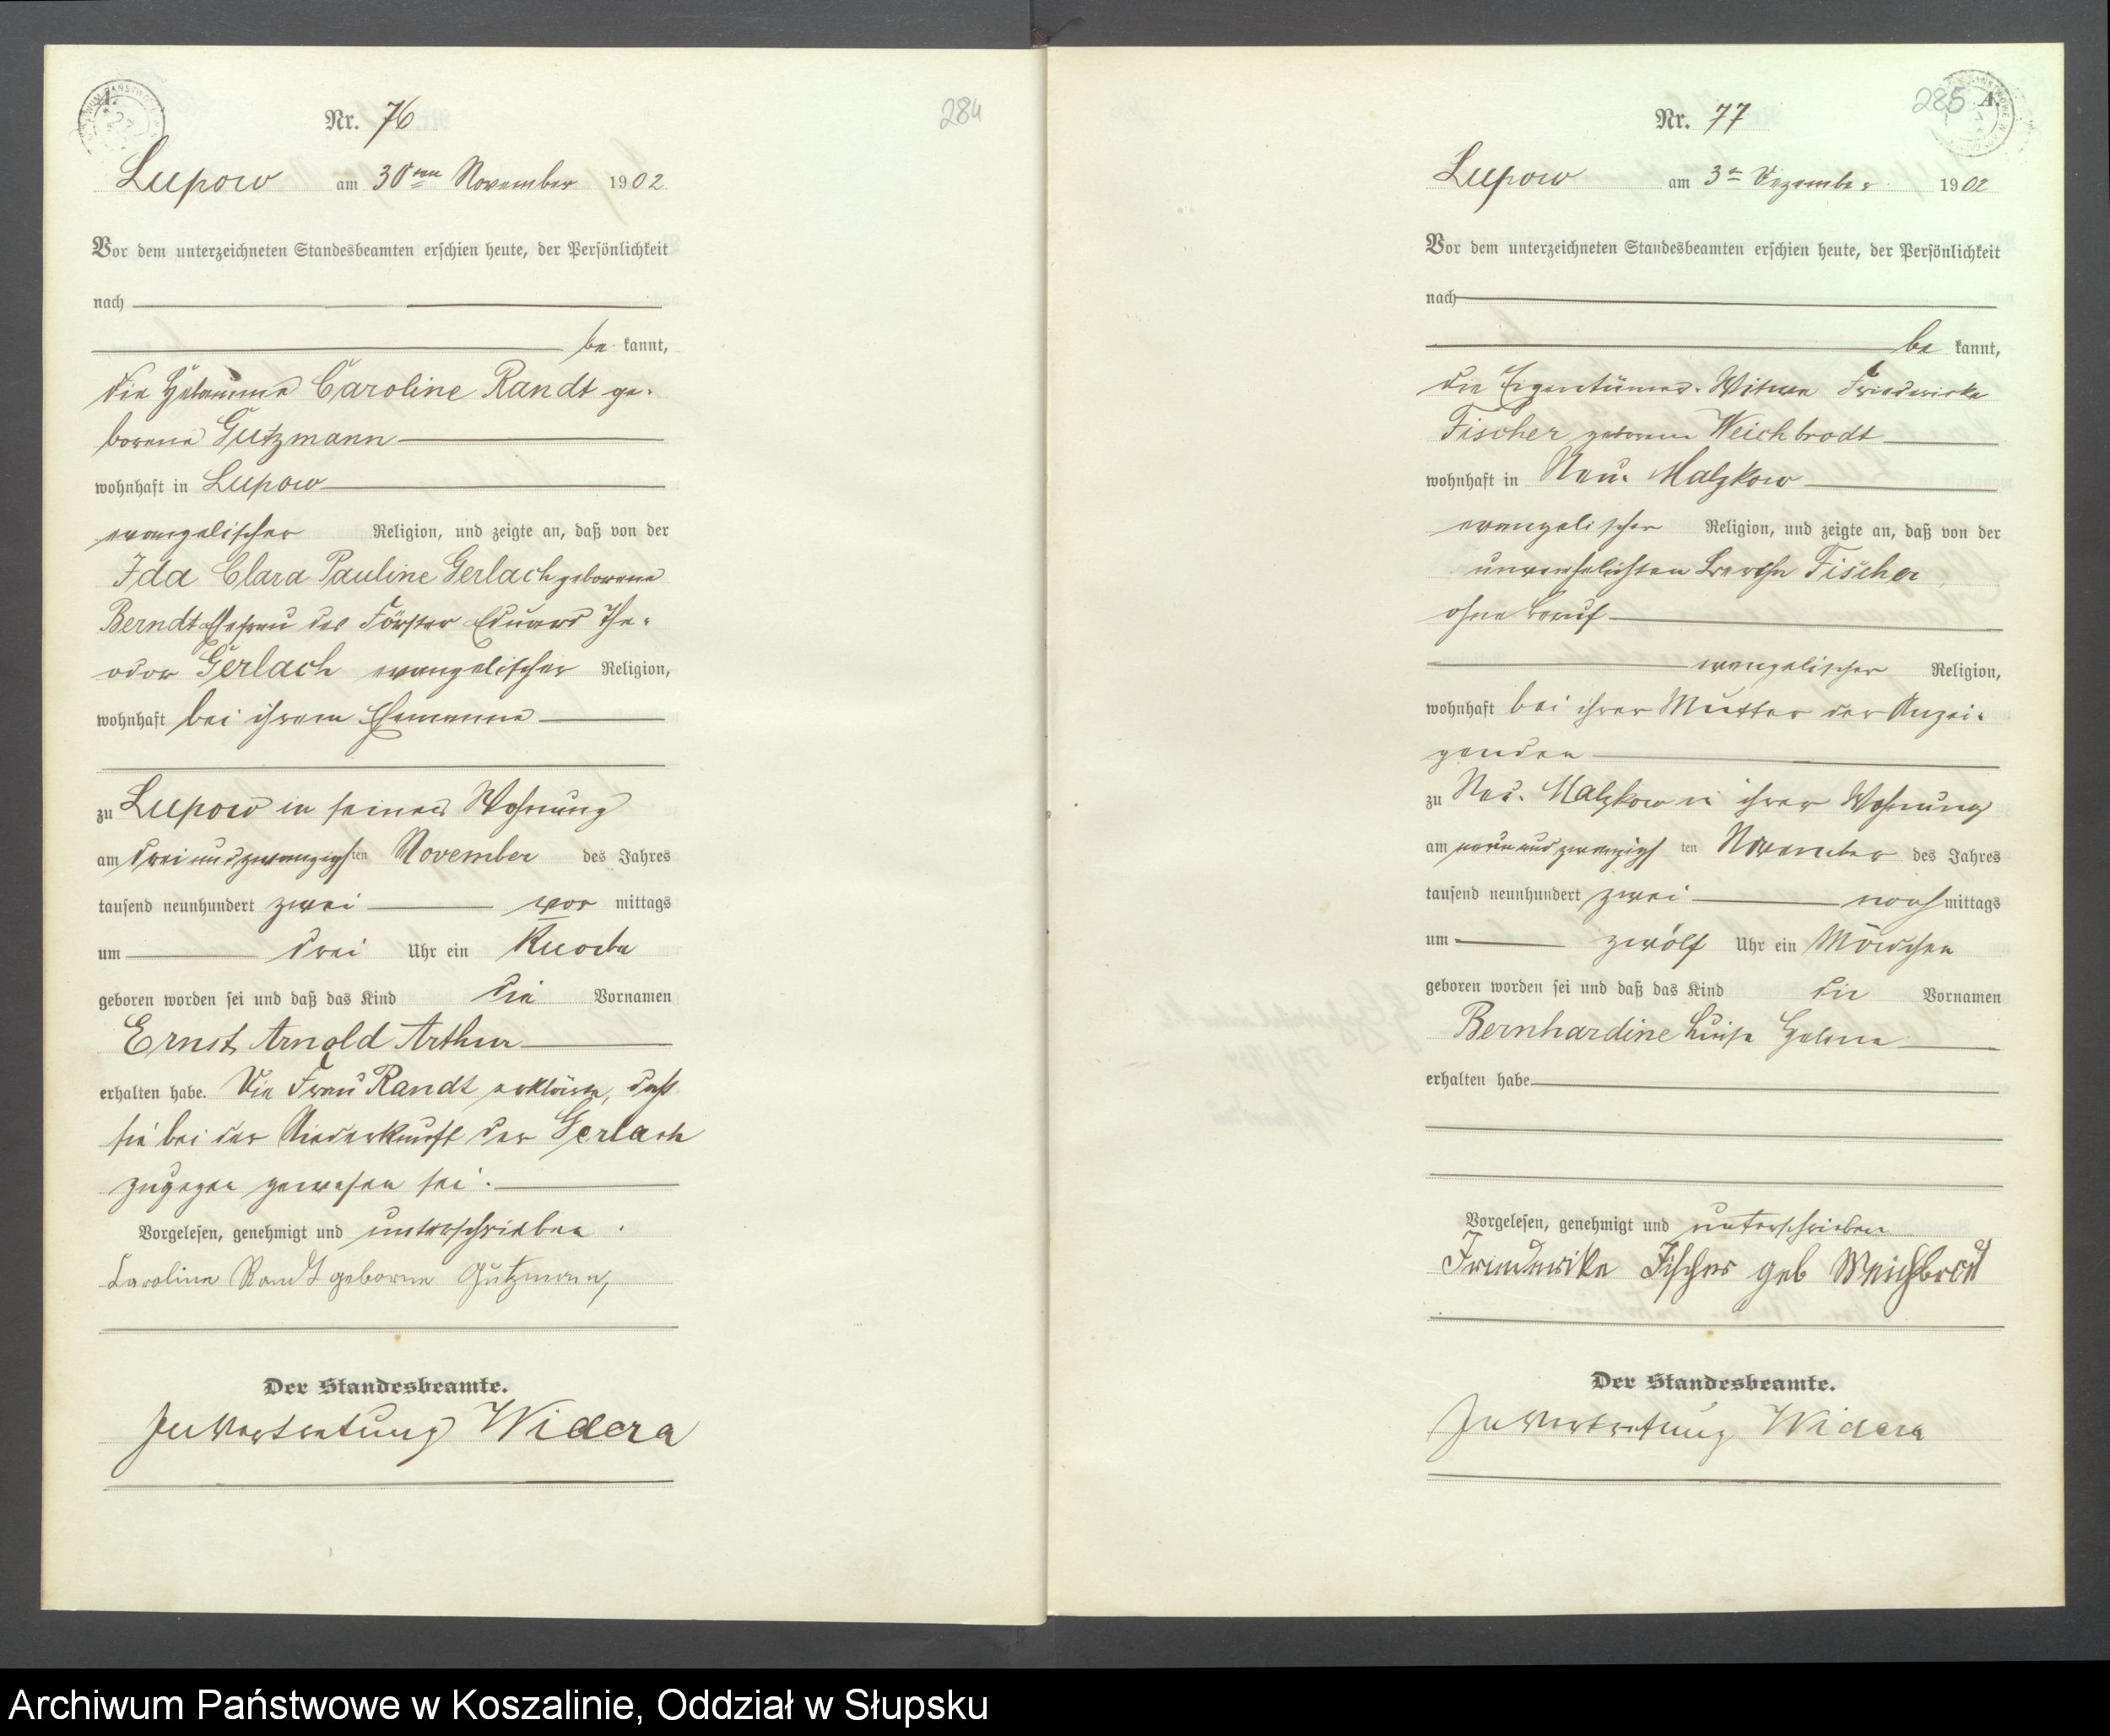 Nr. 76
284
Lupow am 30ten November 1902
Vor dem unterzeichneten Standesbeamten erschien heute, der Persönlichkeit
nach
be kannt,
die Hebamme Caroline Randt ge-
borene Gutzmann
wohnhaft in Lupow
evangelischer Religion, und zeigte an, daß von der
Ida Clara Pauline Gerlach geborene
Berndt Ehefrau des Förster Eduard The-
odor Gerlach evangelischer Religion,
wohnhaft bei ihrem Ehemanne
zu Lupow in seiner Wohnung
am drei und zwanzigsten November des Jahres
tausend neunhundert zwei vor mittags
um drei Uhr ein Knabe
geboren worden sei und daß das Kind die Vornamen
Ernst Arnold Arthur
erhalten habe. Die Frau Randt erklärte, daß
sie bei der Niederkunft der Gerlach
zugegen gewesen sei.
Vorgelesen, genehmigt und unterschrieben.
Caroline Randt geborne Gutzmann,
Der Standesbeamte.
In Vertretung Widera
Nr. 77
285 A.
Lupow am 3ten Dezember 1902
Vor dem unterzeichneten Standesbeamten erschien heute, der Persönlichkeit
nach
be kannt,
die Eigentümer-Witwe Friederike
Fischer geborene Weichbrodt
wohnhaft in Neu-Malzkow
evangelischer Religion, und zeigte an, daß von der
unverehelichten Fischer
ohne Beruf
evangelischer Religion,
wohnhaft bei ihrer Mutter der Anzei-
genden
zu Neu-Malzkow in ihrer Wohnung
am neun und zwanzigsten November des Jahres
tausend neunhundert zwei nach mittags
um zwölf Uhr ein Mädchen
geboren worden sei und daß das Kind die Vornamen
Bernhardine Luise Helene
erhalten habe
Vorgelesen, genehmigt und unterschrieben
Friederike Fischer geb Weichbrodt
Der Standesbeamte.
In Vertretung Widera
Archiwum Państwowe w Koszalinie, Oddział w Słupsku